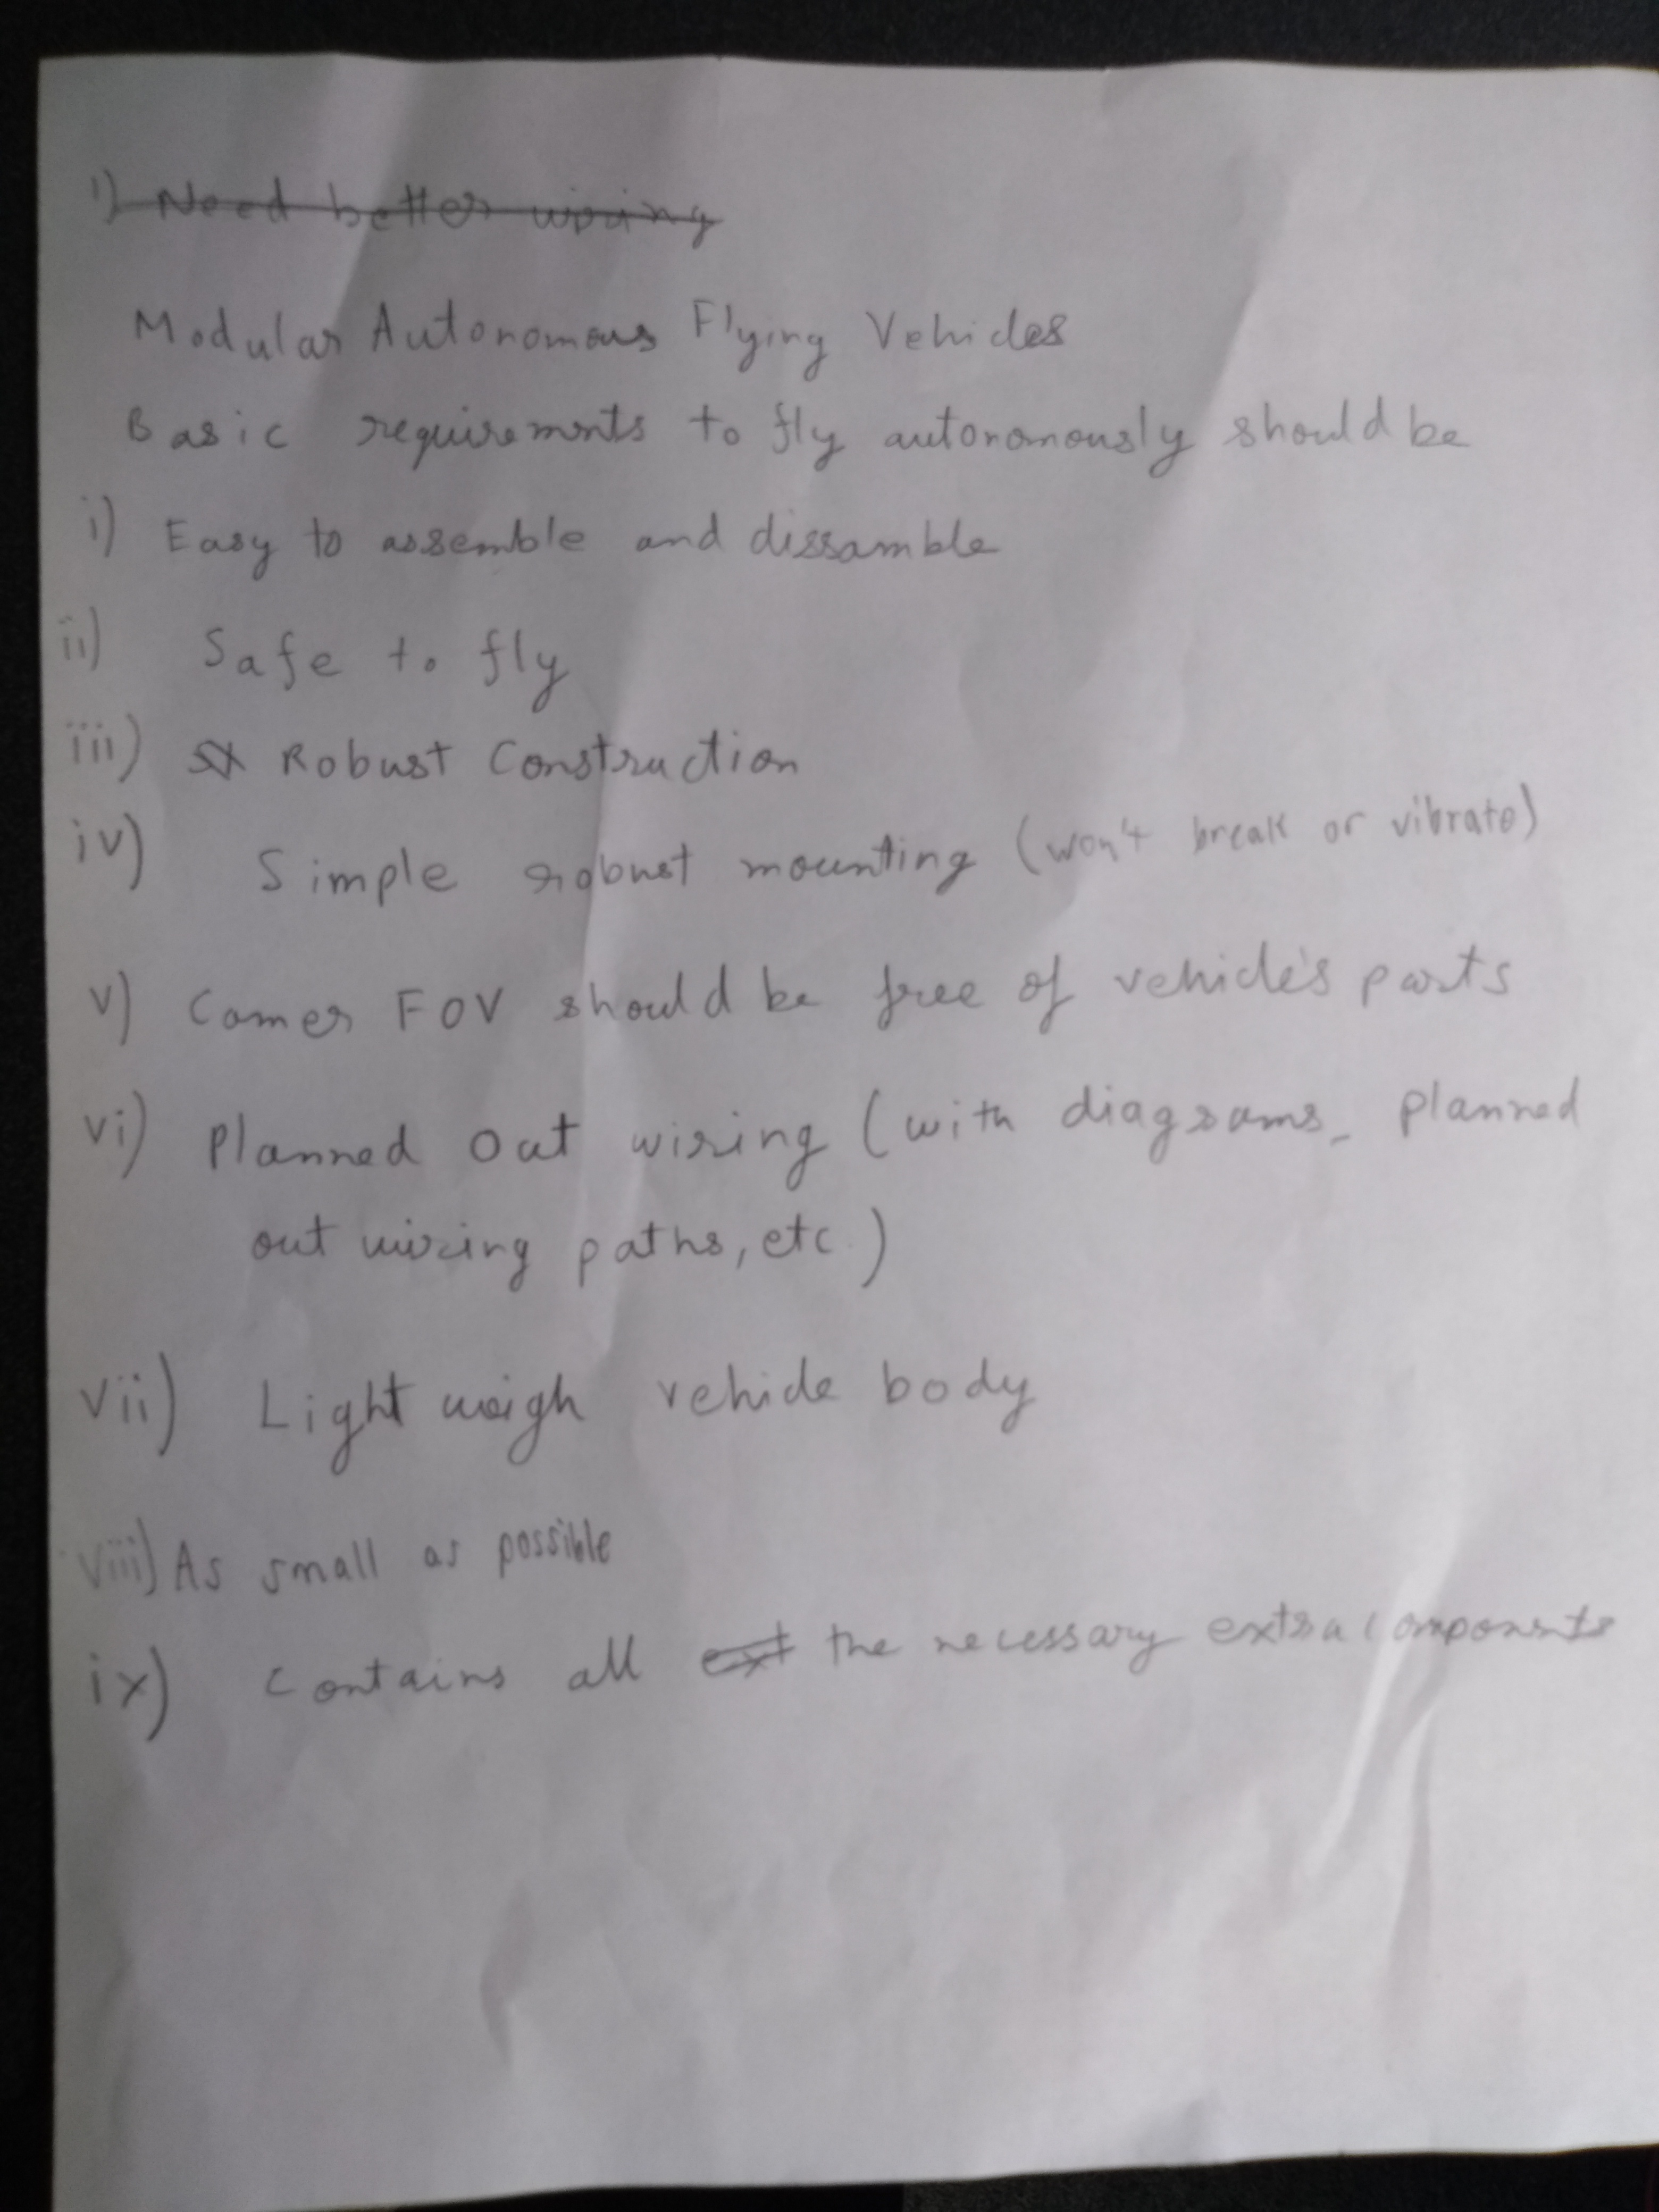 1) Need better wiring
Modular Autonomous Flying Vehicles
Basic requirements to fly autonomously should be
i) Easy to assemble and dissamble
ii) Safe to fly
iii) Robust Construction
iv) Simple robust mounting (won't break or vibrate)
v) Camer FOV should be free of vehicle's parts
vi) Planned out wiring (with diagrams, planned
out wiring paths, etc.)
vii) Light weigh vehicle body
viii) As small as possible
ix) Contains all ext the necessary extra components